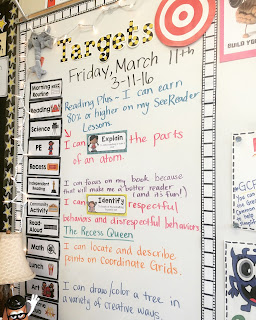 Targets
Friday, March 11th
3-11-16
Reading Plus - I can earn
80% or higher on my SeeReader
Lessons.
I can Explain the parts
of an atom.
I can focus on my book because
that will make me a better reader
(and its fun!)
I can Identify respectful
behaviors and disrespectful behaviors
The Recess Queen
I can locate and describe
points on Coordinate Grids.
I can draw/color a tree in
a variety of creative ways.
Morning
Routine
Reading
Science
PE
Recess
Independent
Reading
Community
Activity
Read
Aloud
Math
Lunch
Art
BUILD YOU
GCF